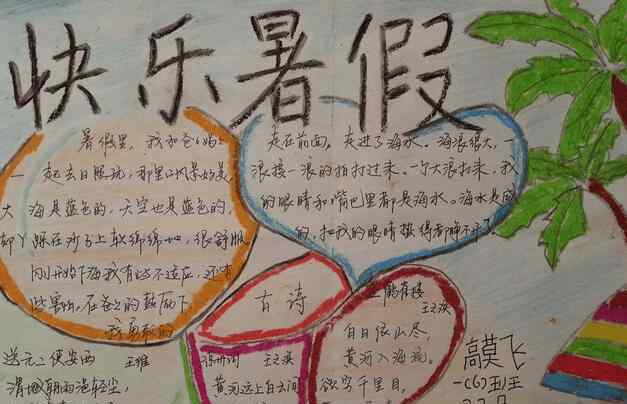 快乐暑假
暑假里，我和爸妈
一起去日照玩，那里的风景好美，
大海是蓝色的，天空也是蓝色的，
脚丫踩在沙子上软绵绵地，很舒服
刚开始下海我有些不适应，还有
些害怕，在爸爸的鼓励下，
我勇敢的
走在前面，走进了海水。海浪很大，一
浪接一浪的拍打过来。一个大浪打来，我
的眼睛和嘴巴里都是海水。海水是咸
的，把我的眼睛 得都睁不开了。
古诗
送元二使安西
王维
渭城朝雨浥轻尘，
王之涣
黄河远上白云间
登鹳雀楼
王之涣
白日依山尽，
黄河入海流。
欲穷千里目，
高莫飞
一(6)班